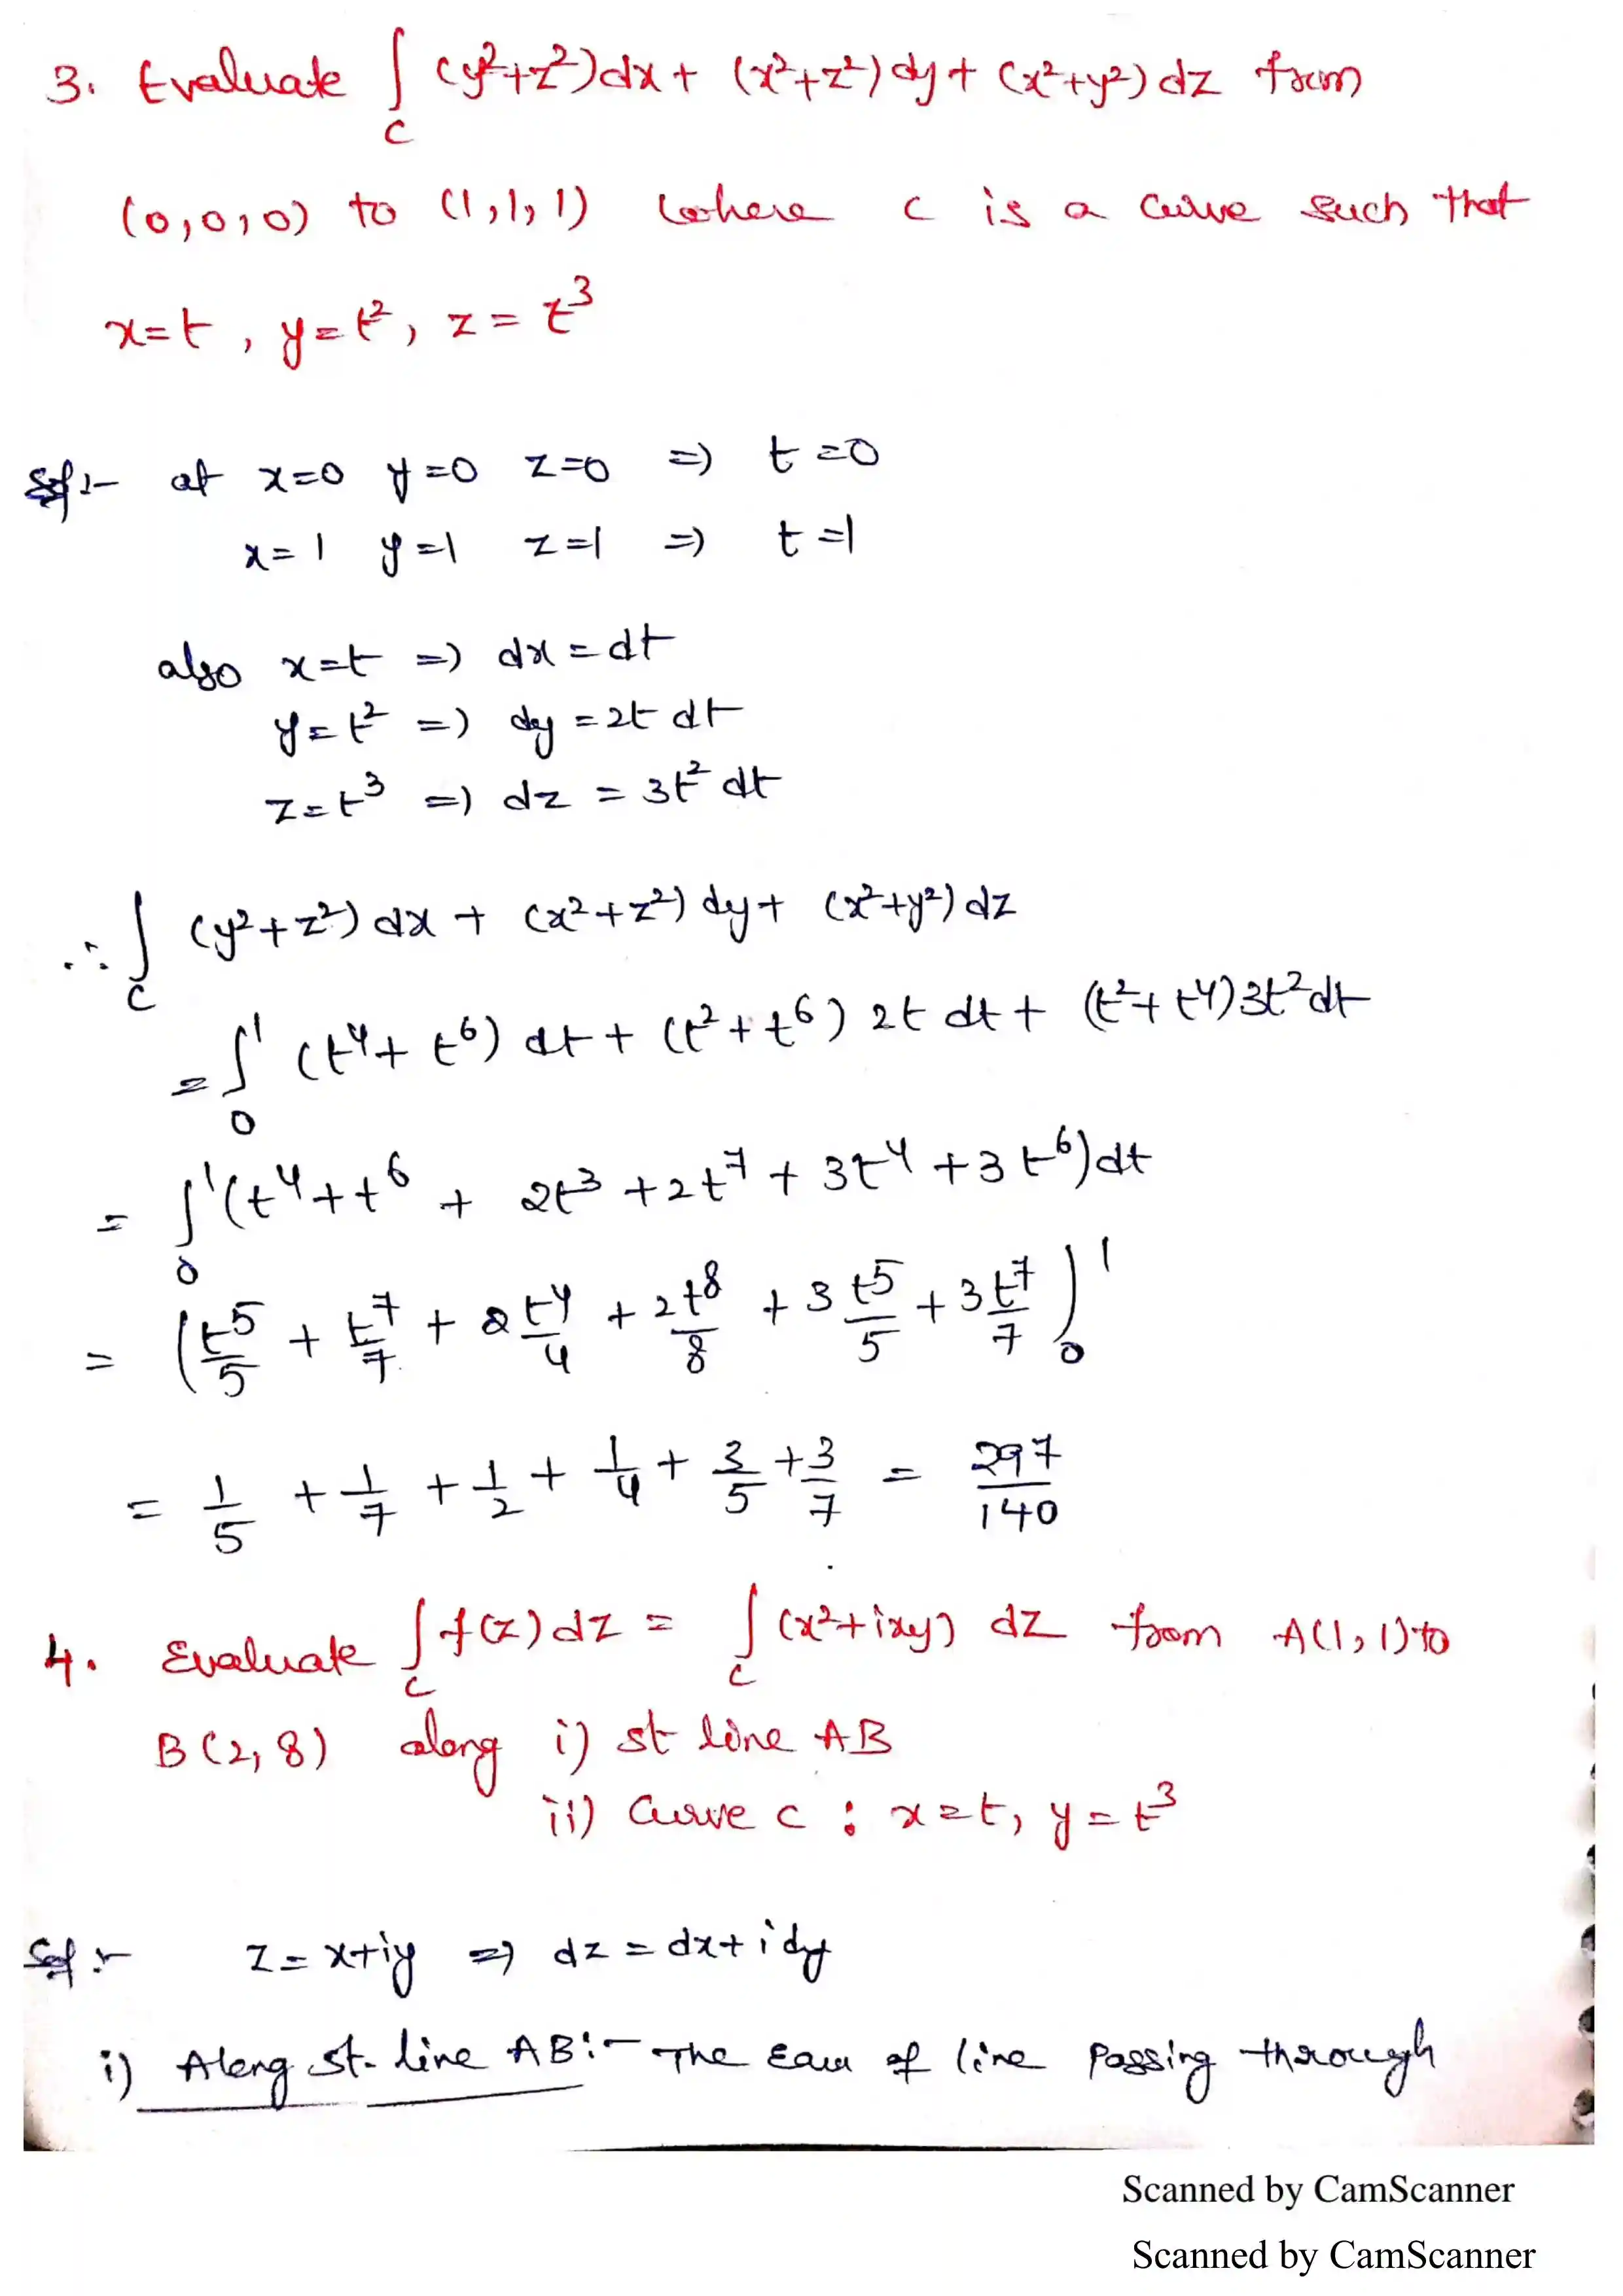 3. Evaluate ∫_C (y²+z²)dx + (x²+z²)dy + (x²+y²)dz from
(0,0,0) to (1,1,1) where c is a curve such that
x=t, y=t², z=t³
Sol:- at x=0 y=0 z=0 ⇒ t=0
x=1 y=1 z=1 ⇒ t=1
also x=t ⇒ dx=dt
y=t² ⇒ dy=2t dt
z=t³ ⇒ dz=3t² dt
∴ ∫_C (y²+z²)dx + (x²+z²)dy + (x²+y²)dz
= ∫_0^1 (t⁴+t⁶)dt + (t²+t⁶)2t dt + (t²+t⁴)3t²dt
= ∫_0^1 (t⁴+t⁶+2t³+2t⁷+3t⁴+3t⁶)dt
= (t⁵/5 + t⁷/7 + 2t⁴/4 + 2t⁸/8 + 3t⁵/5 + 3t⁷/7)_0^1
= 1/5 + 1/7 + 1/2 + 1/4 + 3/5 + 3/7 = 297/140
4. Evaluate ∫_C f(z)dz = ∫_C (x²+ixy) dz from A(1,1) to
B(2,8) along i) st line AB
ii) Curve c : x=t, y=t³
Sol:- z=x+iy ⇒ dz=dx+idy
i) Along st. line AB:- The Eqn of line passing through
Scanned by CamScanner
Scanned by CamScanner